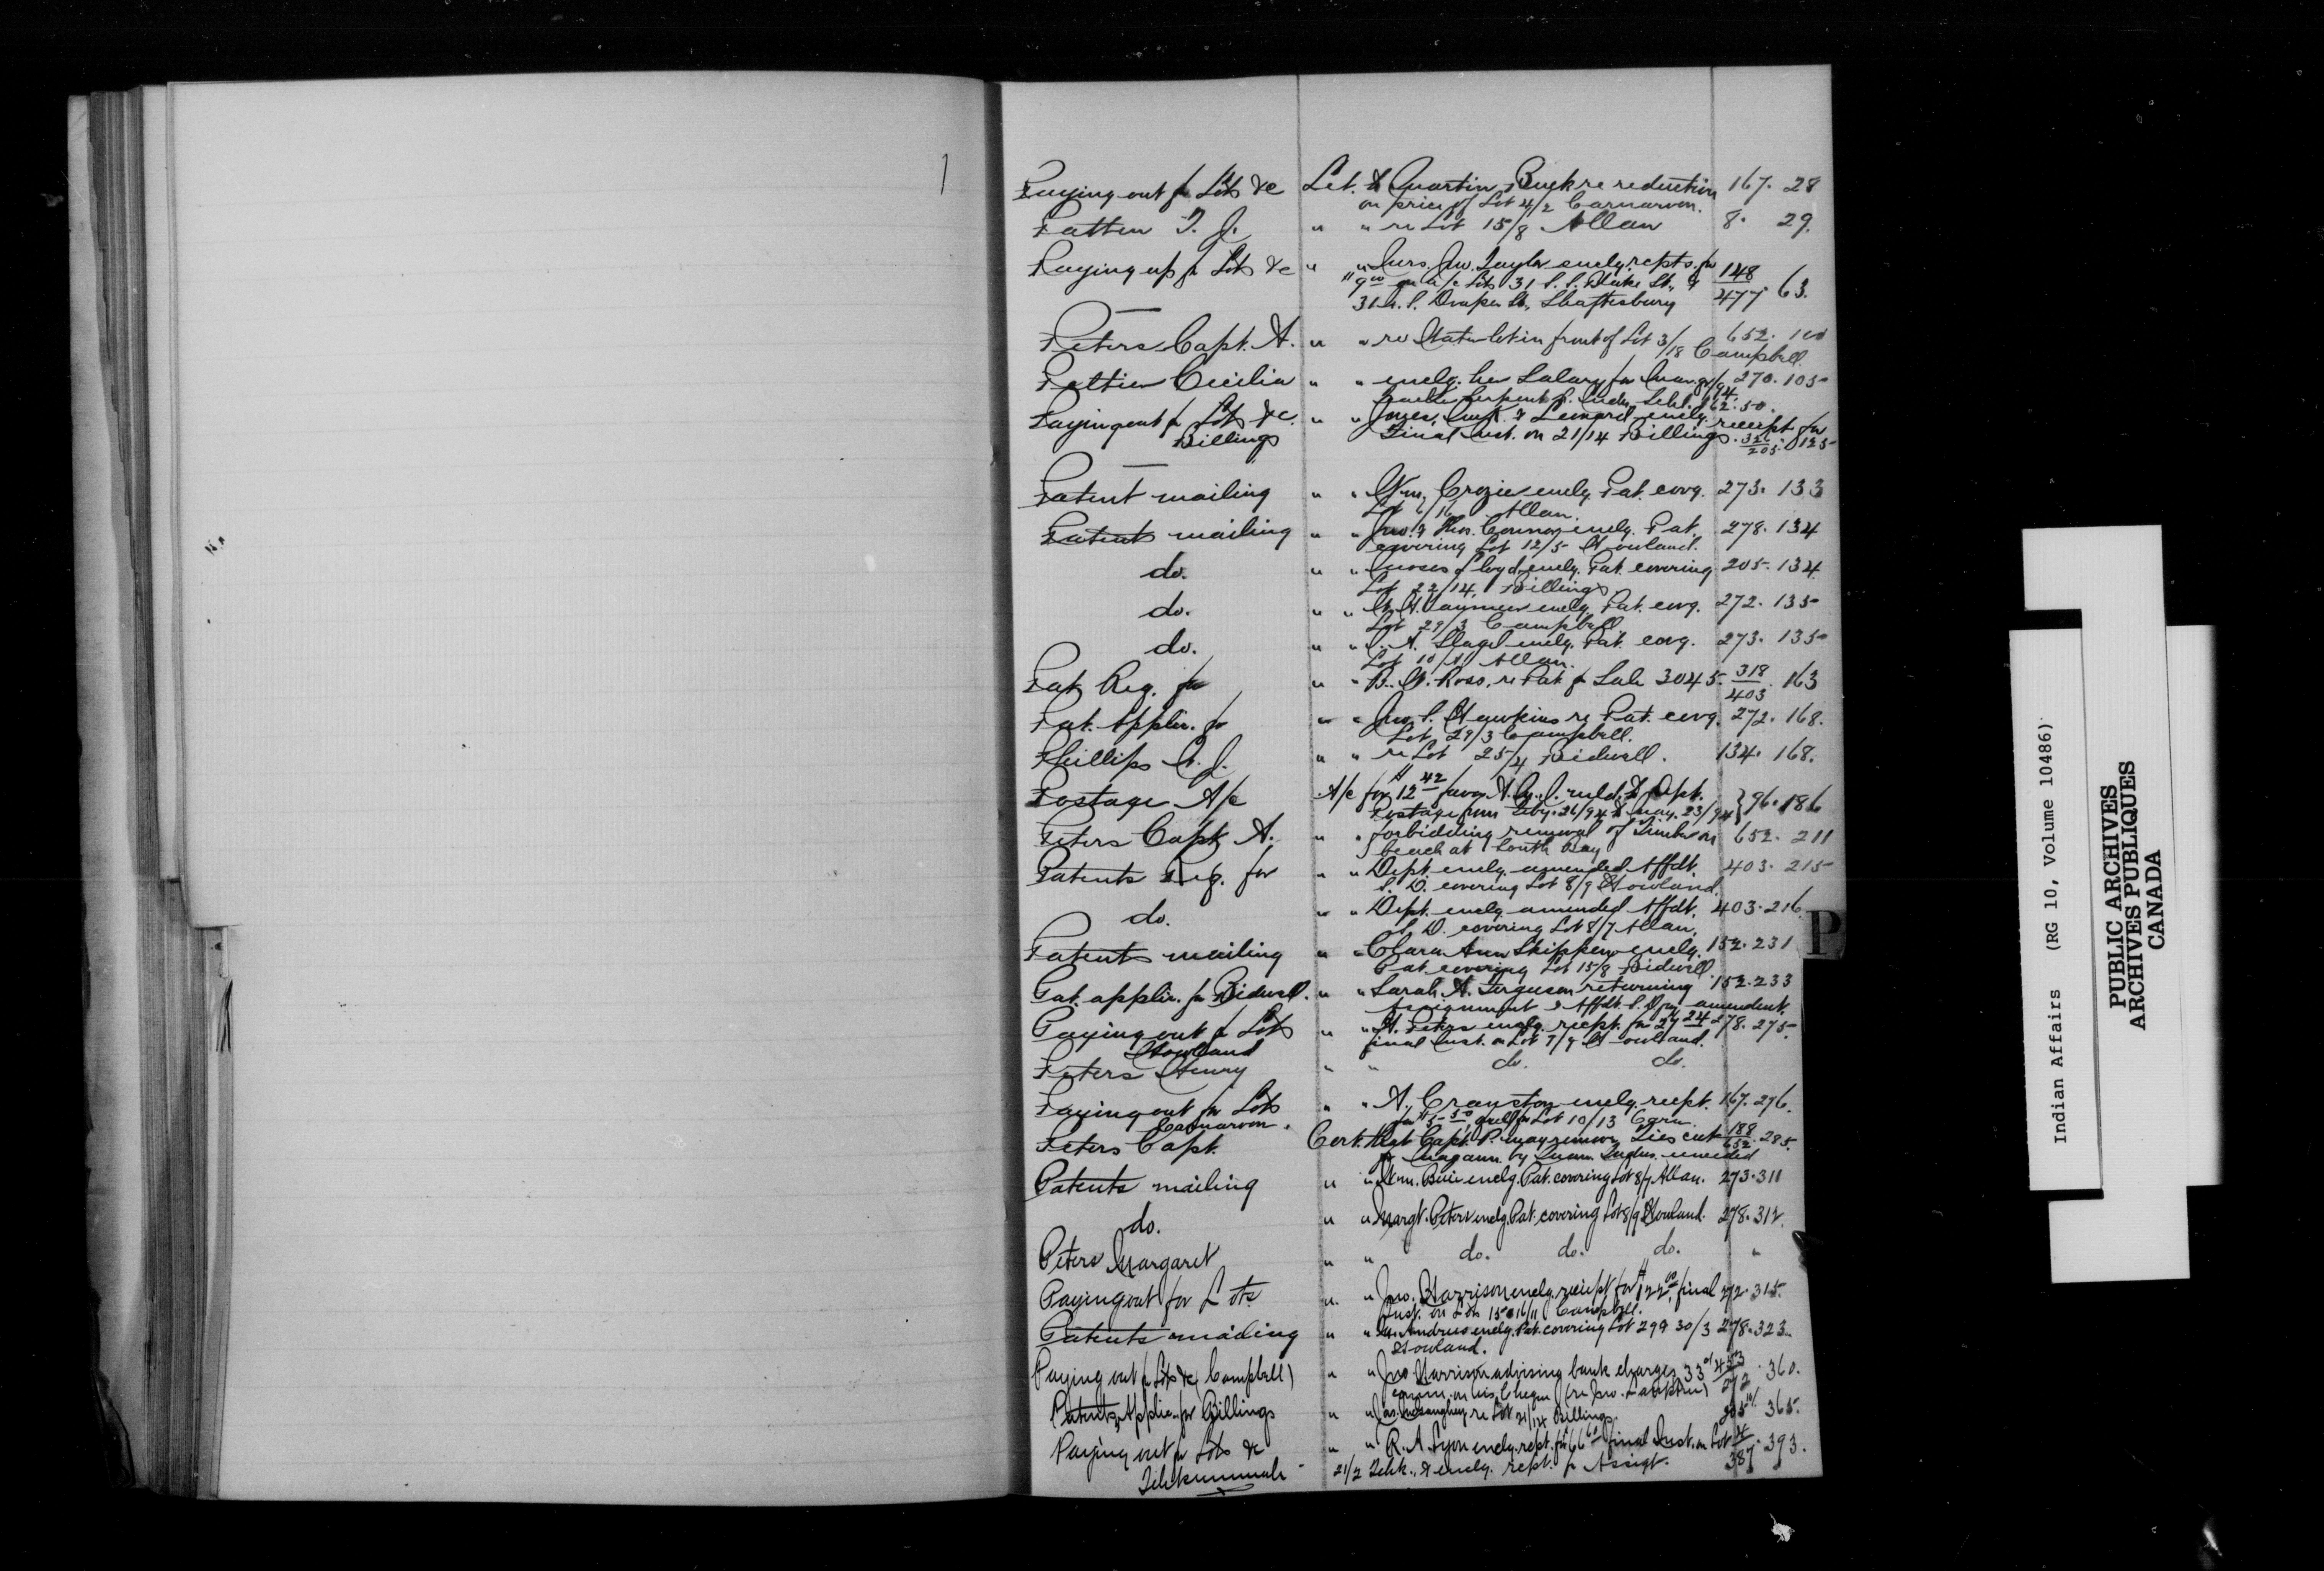 Paying out for Lots &c Let. to Martin Buck re reduction 167. 28
on price of Lot 4/2 Carnarvon.
Patten T. J. " " re Lot 15/8 Allan 8. 29.
Paying up for Lots &c " " Mrs. Jno. Taylor enclg. repts. for 148/477. 63.
$9 00 on a/c Lots 31 S. S. Blake St. &
31 N. S. Draper St., Shaftesbury
Peters Capt. A. " " re Water-lot in front of Lot 3/18 Campbell. 652. 100
Peltier Cecilia " " enclg. her Salary for Mar. qr/94 270. 105
Serpent R. Indn. Schl. $62.50.
Paying out for Lots &c. " " & Leonard enclg. receipt for
Billings Final Inst. on 21/14 Billings. 326/205. 125
Patent mailing " " Wm. Crozier enclg. Pat. covg. 273. 133
Lot 6/16 Allan.
Patents mailing " " Jno. & Thos. Connor enclg. Pat. 278. 134
covering Lot 12/5 Howland.
do. " " Moses Lloyd enclg. Pat. covering 205. 134
Lot 22/14, Billings
do. " " enclg. Pat. covg. 272. 135
Lot 29/3 Campbell
do. " " A. Slagel enclg. Pat. covg. 273. 135
Lot 10/ Allan.
Pat. Req. for " " B. W. Ross, re Pat. for Sale 3045. 318/403. 163
Pat. Applicn. for " " Jno. S. Hawkins re Pat. covg. 272. 168.
Lot 29/3 Campbell.
Phillips J. " " re Lot 25/4 Bidwell. 134. 168.
Postage A/c A/c for $12 42 favor to Dpt. } 96. 186
Postage from Feby. 26/94 to May. 23/94
Peters Capt. A. " " forbidding removal of Timber on 652. 211
beach at South Bay
Patents Req. for " " Dept. enclg. amended Affdt. 403. 215
S. D. covering Lot 8/9 Howland.
do. " " Dept. enclg. amended Affdt. 403. 216
S. D. covering Lot 8/7 Allan.
P
Patents mailing " " Clara Ann Skippen enclg. 152. 231
Pat. covering Lot 15/8 Bidwell.
Pat. applicn. for Bidwell. " " Sarah A. Ferguson returning 152. 233
Assignment & Affdt. S. D. for amendmt.
Paying out for Lots " " H. Peters enclg. recpt. for 27 24 278. 275.
Howland final Inst. on Lot 7/9 Howland.
Peters Henry " " do. do.
Paying out for Lots " " A. Cranston enclg. recpt. 167. 276.
Carnarvon. for Lot 10/13 Carn.
Peters Capt. Cert. that Capt. P. may remove Ties cut 188/652. 285.
by Indns. unceded
Patents mailing " " Wm. Buie enclg. Pat. covering Lot 8/7 Allan. 273. 311
do. " " Margt. Peters enclg. Pat. covering Lot 8/9 Howland. 278. 312.
Peters Margaret " " do. do. do. "
Paying out for Lots " " Jno. Harrison enclg. receipt for $122 00, final 272. 315.
Inst. on Lots 15 & 16/11 Campbell.
Patents mailing " " Andrews enclg. Pat. covering Lot 29 & 30/3 278. 323.
Howland.
Paying out for Lots &c (Campbell) " " Jno Harrison advising bank charges 33 272. 360.
on his Cheque (re Jno. )
Patents, Applicn. for Billings " " re Lot 21/14 Billings. 205 365.
Paying out for Lots &c " " R. A. Lyon enclg. rept. for $66 final Inst. on Lot 387. 393.
Tehkummah 21/2 Tehk., & enclg. rept. for Assigt.
Indian Affairs (RG 10, Volume 10486)
PUBLIC ARCHIVES
ARCHIVES PUBLIQUES
CANADA